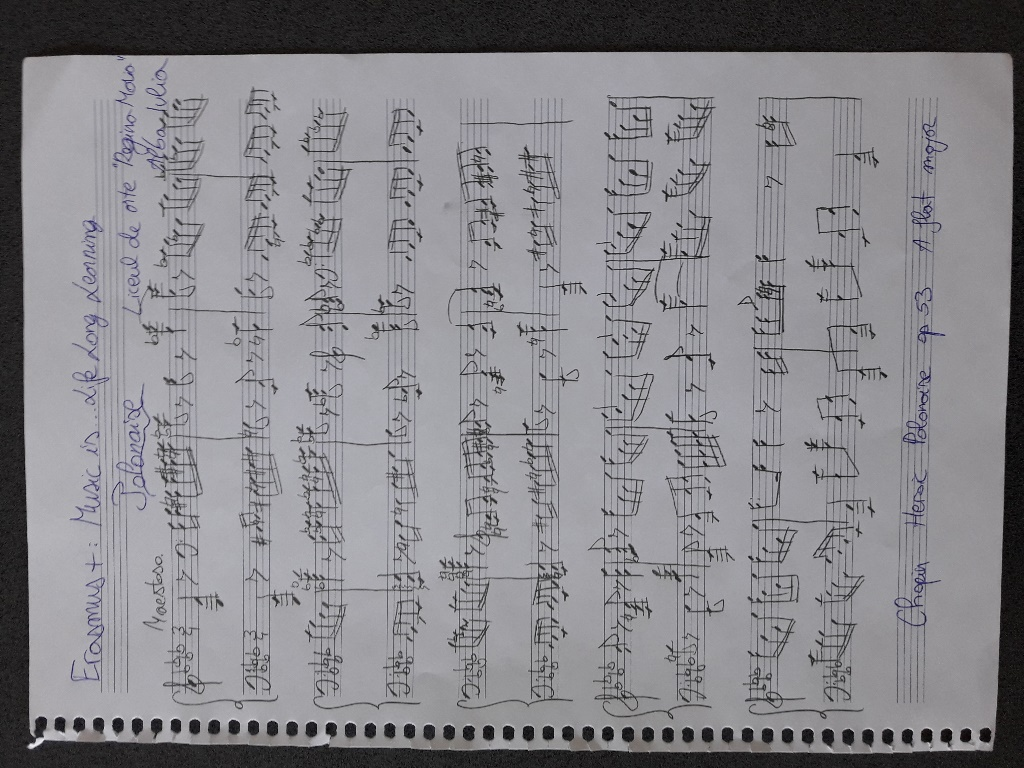 Erasmus + : Music is... Life Long Learning
Polonaise
Liceul de Arte "Regina Maria"
Alba Iulia
Maestoso
Chopin Heroic Polonaise op 53 A flat major